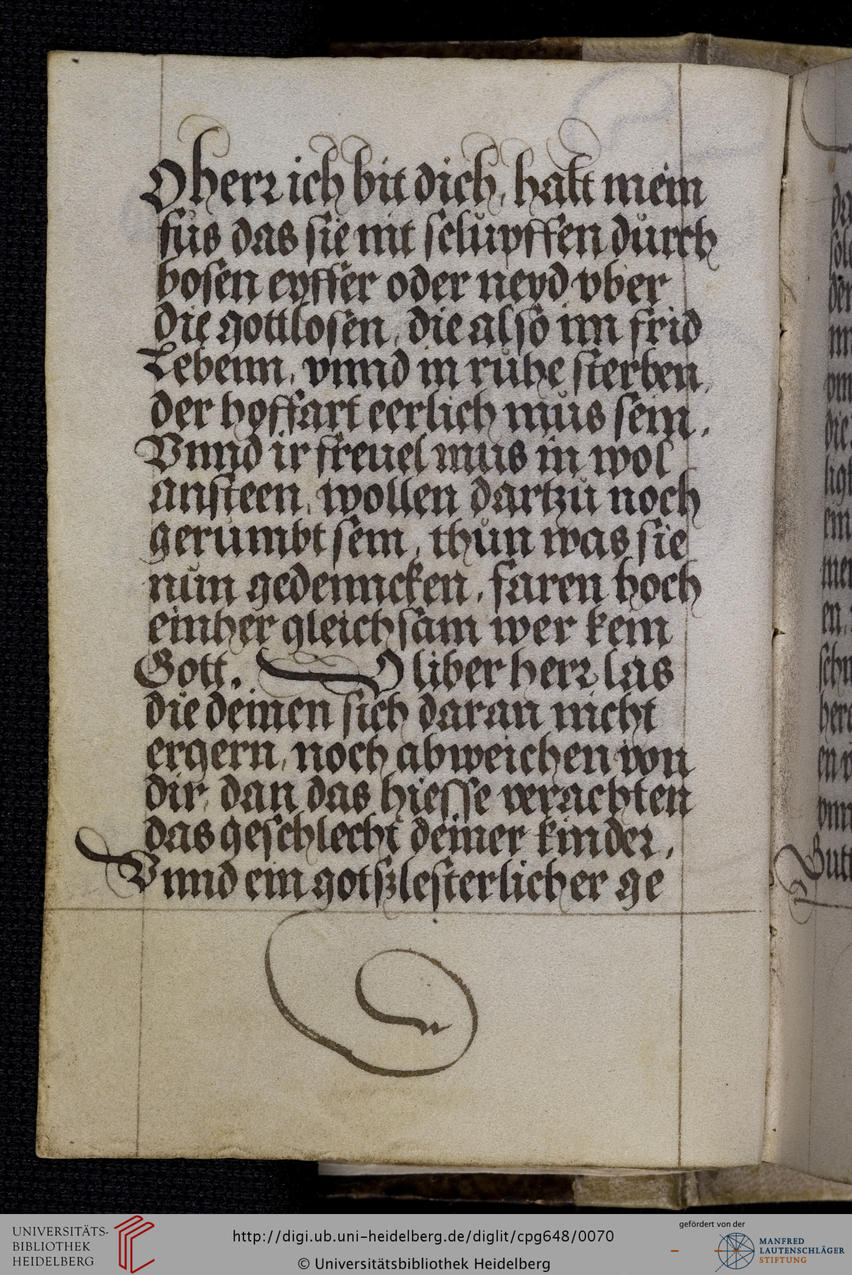 O herr ich bit dich, halt mein
fůs das sie nit schlupffen dürch
bosen eyffer oder neyd vber
die gottlosen, die also im frid
Lebenn, vnnd in růhe sterben,
der hoffart eerlich můs sein,
Vnnd ir freuel mus in wol
ansteen, wollen dartzů noch
gerůmbt sein, thůn was sie
nůn gedenncken, faren hoch
einher gleich sam wer kein
Gott. O liber herr las
die deinen sich daran nicht
ergern, noch abweichen von
dir, dan das hiesse verachten
das geschlecht deiner kinder,
Vnnd ein gotßlesterlicher ge
UNIVERSITÄTS-
BIBLIOTHEK
HEIDELBERG
http://digi.ub.uni-heidelberg.de/diglit/cpg648/0070
© Universitätsbibliothek Heidelberg
gefördert von der
MANFRED
LAUTENSCHLÄGER
STIFTUNG